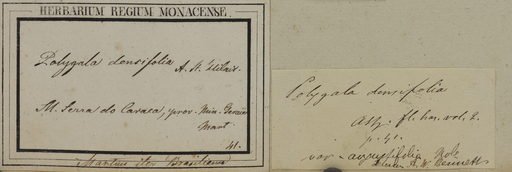 HERBARIUM REGIUM MONACENSE.
Polygala densifolia A. St. Hilair.
M. Serra do Caraca, prov. Min. Geraes
Mart.
41.
Martius Iter Brasiliense
Polygala densifolia
fl. bras. vol. 2.
p. 41.
var. angustifolia
A. W. Bennett